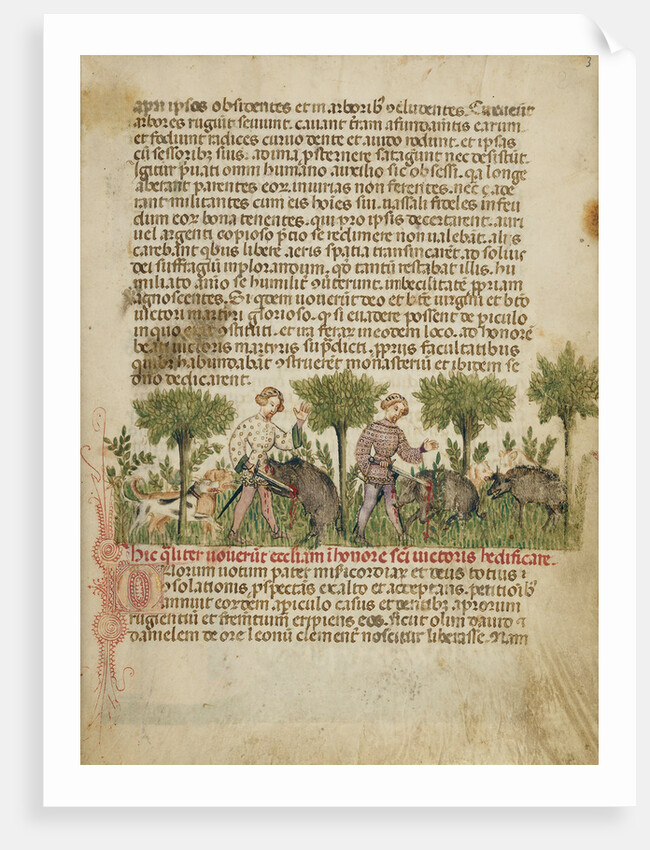 3
apri ipsos obsidentes et in arborib9 9cludentes. Circueūt
arbores rugiūt seviunt. cavant t̄ram a fundam̄tis earum
et fodiunt radices curvo dente et avido rodunt. et ipsas
cū sessorib9 suis. ad ima p̱sternere satagunt nec desistūt.
Igitur p̱vati omni humano auxilio sic obsessi. qa longe
aberant parentes eoꝝ. iniurias non ferentes. nec ... ade
rant militantes cum eis hoīes sui. vassali fideles in feu
dum eoꝝ bona tenentes. qui pro ipsis decertarent. auri
vel argenti copioso p̄cio se redimere non valebāt. alis
carebāt qbus libere aeris spatia transmearēt. ad solius
dei suffragiū inplorandum. qd tantū restabat illis. hu
miliato aīo se humilit̄ 9verterunt. inbecilitatē p̱priam
agnoscentes. Si qdem voverūt deo et bte virgini et bto
victori martyri glorioso. qd si evadere possent de piculo
in quo erāt 9stituti. et ira feraꝝ in eodem loco. ad honorē
beati victoris martyris sup̱dicti. p̱priis facultatibus
quibꝝ habundabāt 9struerent monasteriū et ibidem se
dno dedicarent.
hic qliter voverūt eccliam ī honore sci victoris hedificare.
Illorum votum pater misicordiaꝝ et deus totius
9solationis, p̱spectans ex alto et acceptans. petitioib9
annuit eordem. a piculo casus et dentib9 aproꝝum
rugientiū et frementium eripiens eos. sicut olim david et
danielem de ore leonū clement̄ noscitur liberasse. Nam